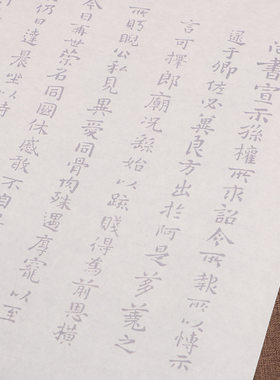 尚書宣示孫權所求詔令所報所以博示
逮于卿佐必冀良方出於阿是芻蕘之
言可擇郎廟況繇始以疏賤得為前恩橫
所眄睨公私見異愛同骨肉殊遇厚寵以至
今日再世榮名同國休慼敢不自
仍日達晨坐以待